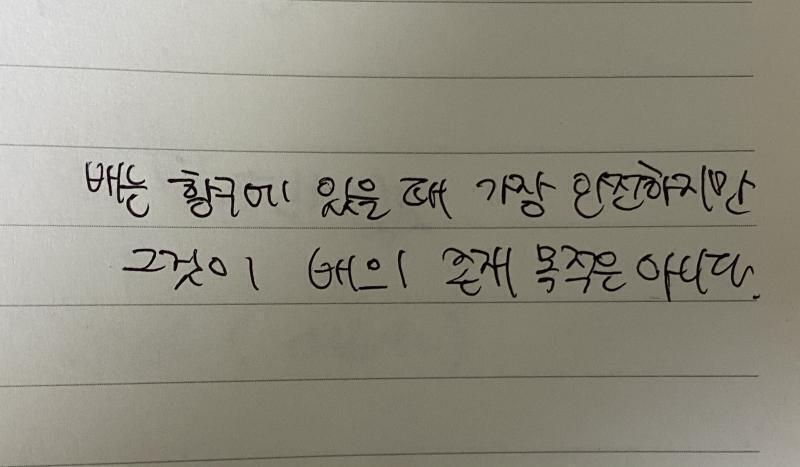 배는 항구에 있을 때 가장 안전하지만
그것이 배의 존재 목적은 아니다.